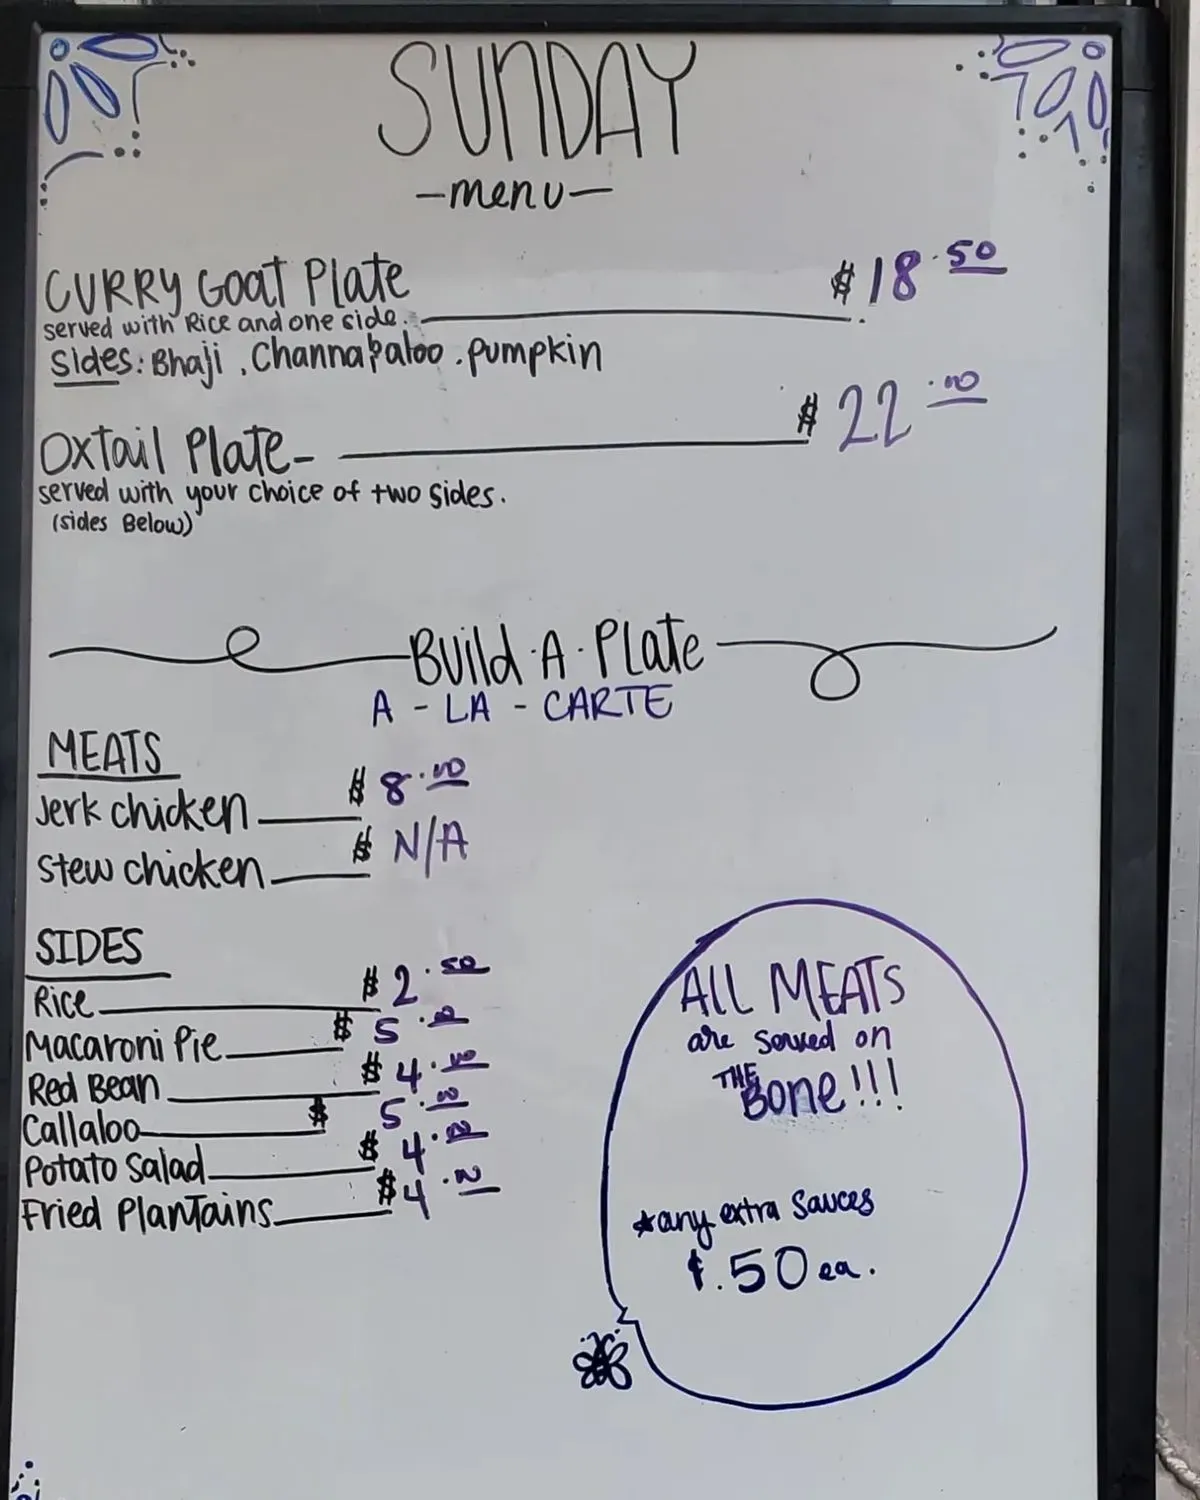 SUNDAY
-menu-
CURRY Goat Plate $18.50
served with Rice and one side.
Sides: Bhaji, Channa & aloo, pumpkin
Oxtail Plate- $22.00
served with your choice of two sides.
(sides Below)
Build·A·Plate
A - LA - CARTE
MEATS
Jerk chicken $8.00
Stew chicken $ N/A
SIDES
Rice $2.50
Macaroni Pie $5.00
Red Bean $4.00
Callaloo $5.00
Potato Salad $4.00
Fried Plantains $4.00
ALL MEATS
are served on
THE Bone!!!
*any extra Sauces
$.50 ea.